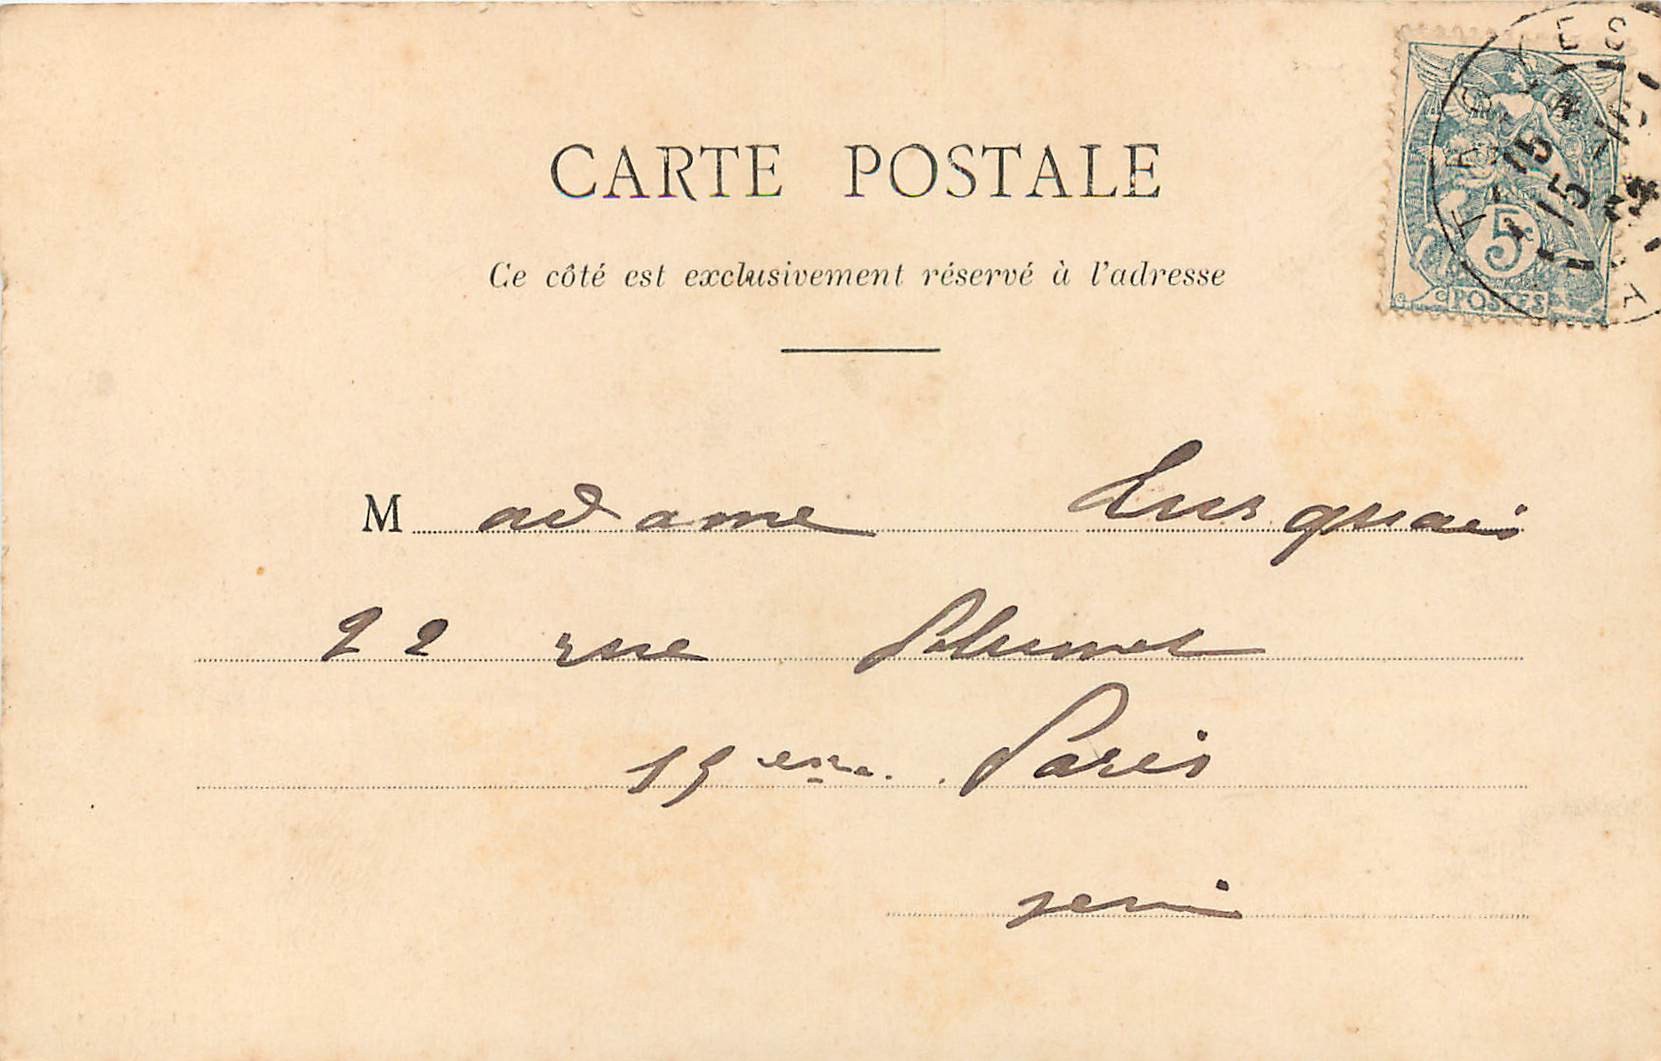 CARTE POSTALE
Ce côté est exclusivement réservé à l'adresse
5c
POSTES
TROYES
Madame Lusquais
22 rue
15eme. Paris